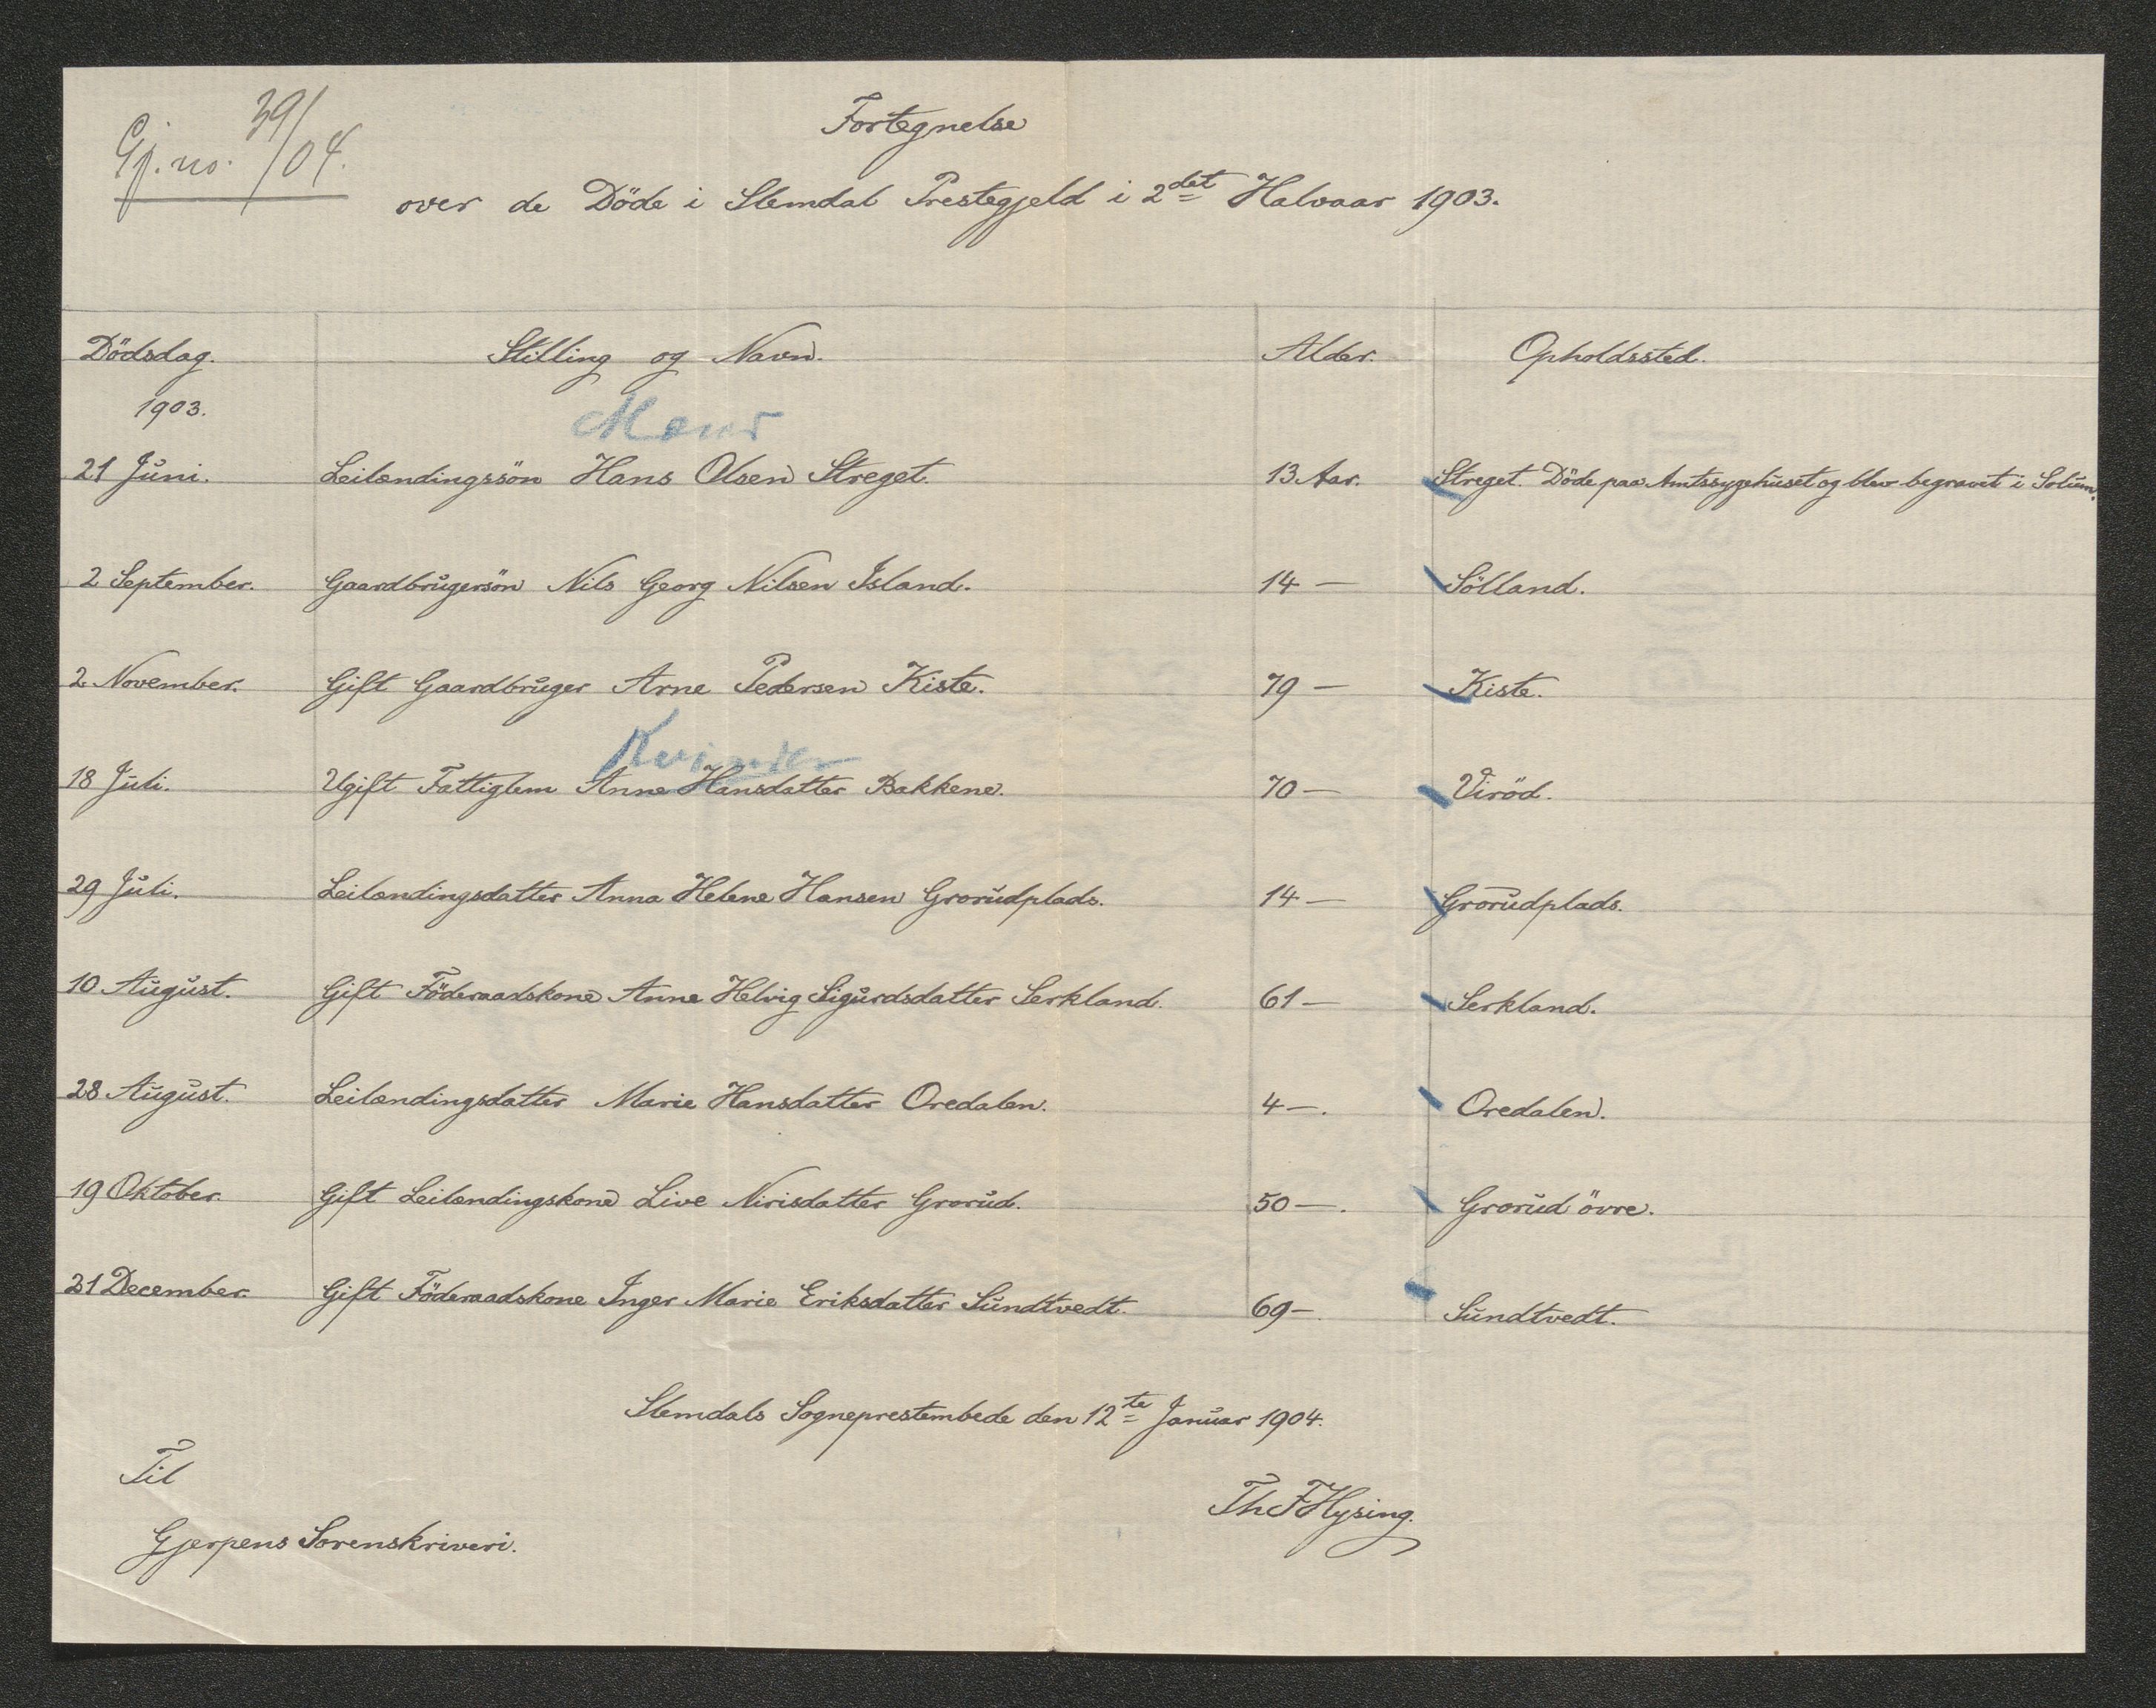 Gj. no. 39/04.
Fortegnelse
over de Döde i Slemdal Prestegjeld i 2det Halvaar 1903.
Dödsdag. Stilling og Navn. Alder. Opholdssted.
1903.
Mænd
21 Juni. Leilændingssön Hans Olsen Streget. 13 Aar. Streget. Döde paa Amtssygehuset og blev begravet i Solum.
2 September. Gaardbrugersön Nils Georg Nilsen Island. 14 — Sölland.
2 November. Gift Gaardbruger Arne Pedersen Kiste. 79 — Kiste.
Kvinder
18 Juli. Ugift Fattiglem Anne Hansdatter Bakkene. 70 — Viröd.
29 Juli. Leilændingsdatter Anna Helene Hansen Grorudplads. 14 — Grorudplads.
10 August. Gift Föderaadskone Anne Helvig Sigurdsdatter Serkland. 61 — Serkland.
28 August. Leilændingsdatter Marie Hansdatter Oredalen. 4 —. Oredalen.
19 Oktober. Gift Leilændingskone Live Nirisdatter Grorud. 50 —. Grorud övre.
21 December. Gift Föderaadskone Inger Marie Eriksdatter Sundtvedt. 69 — Sundtvedt.
Slemdals Sogneprestembede den 12te Januar 1904.
Th F Hysing.
Til
Gjerpens Sorenskriveri.